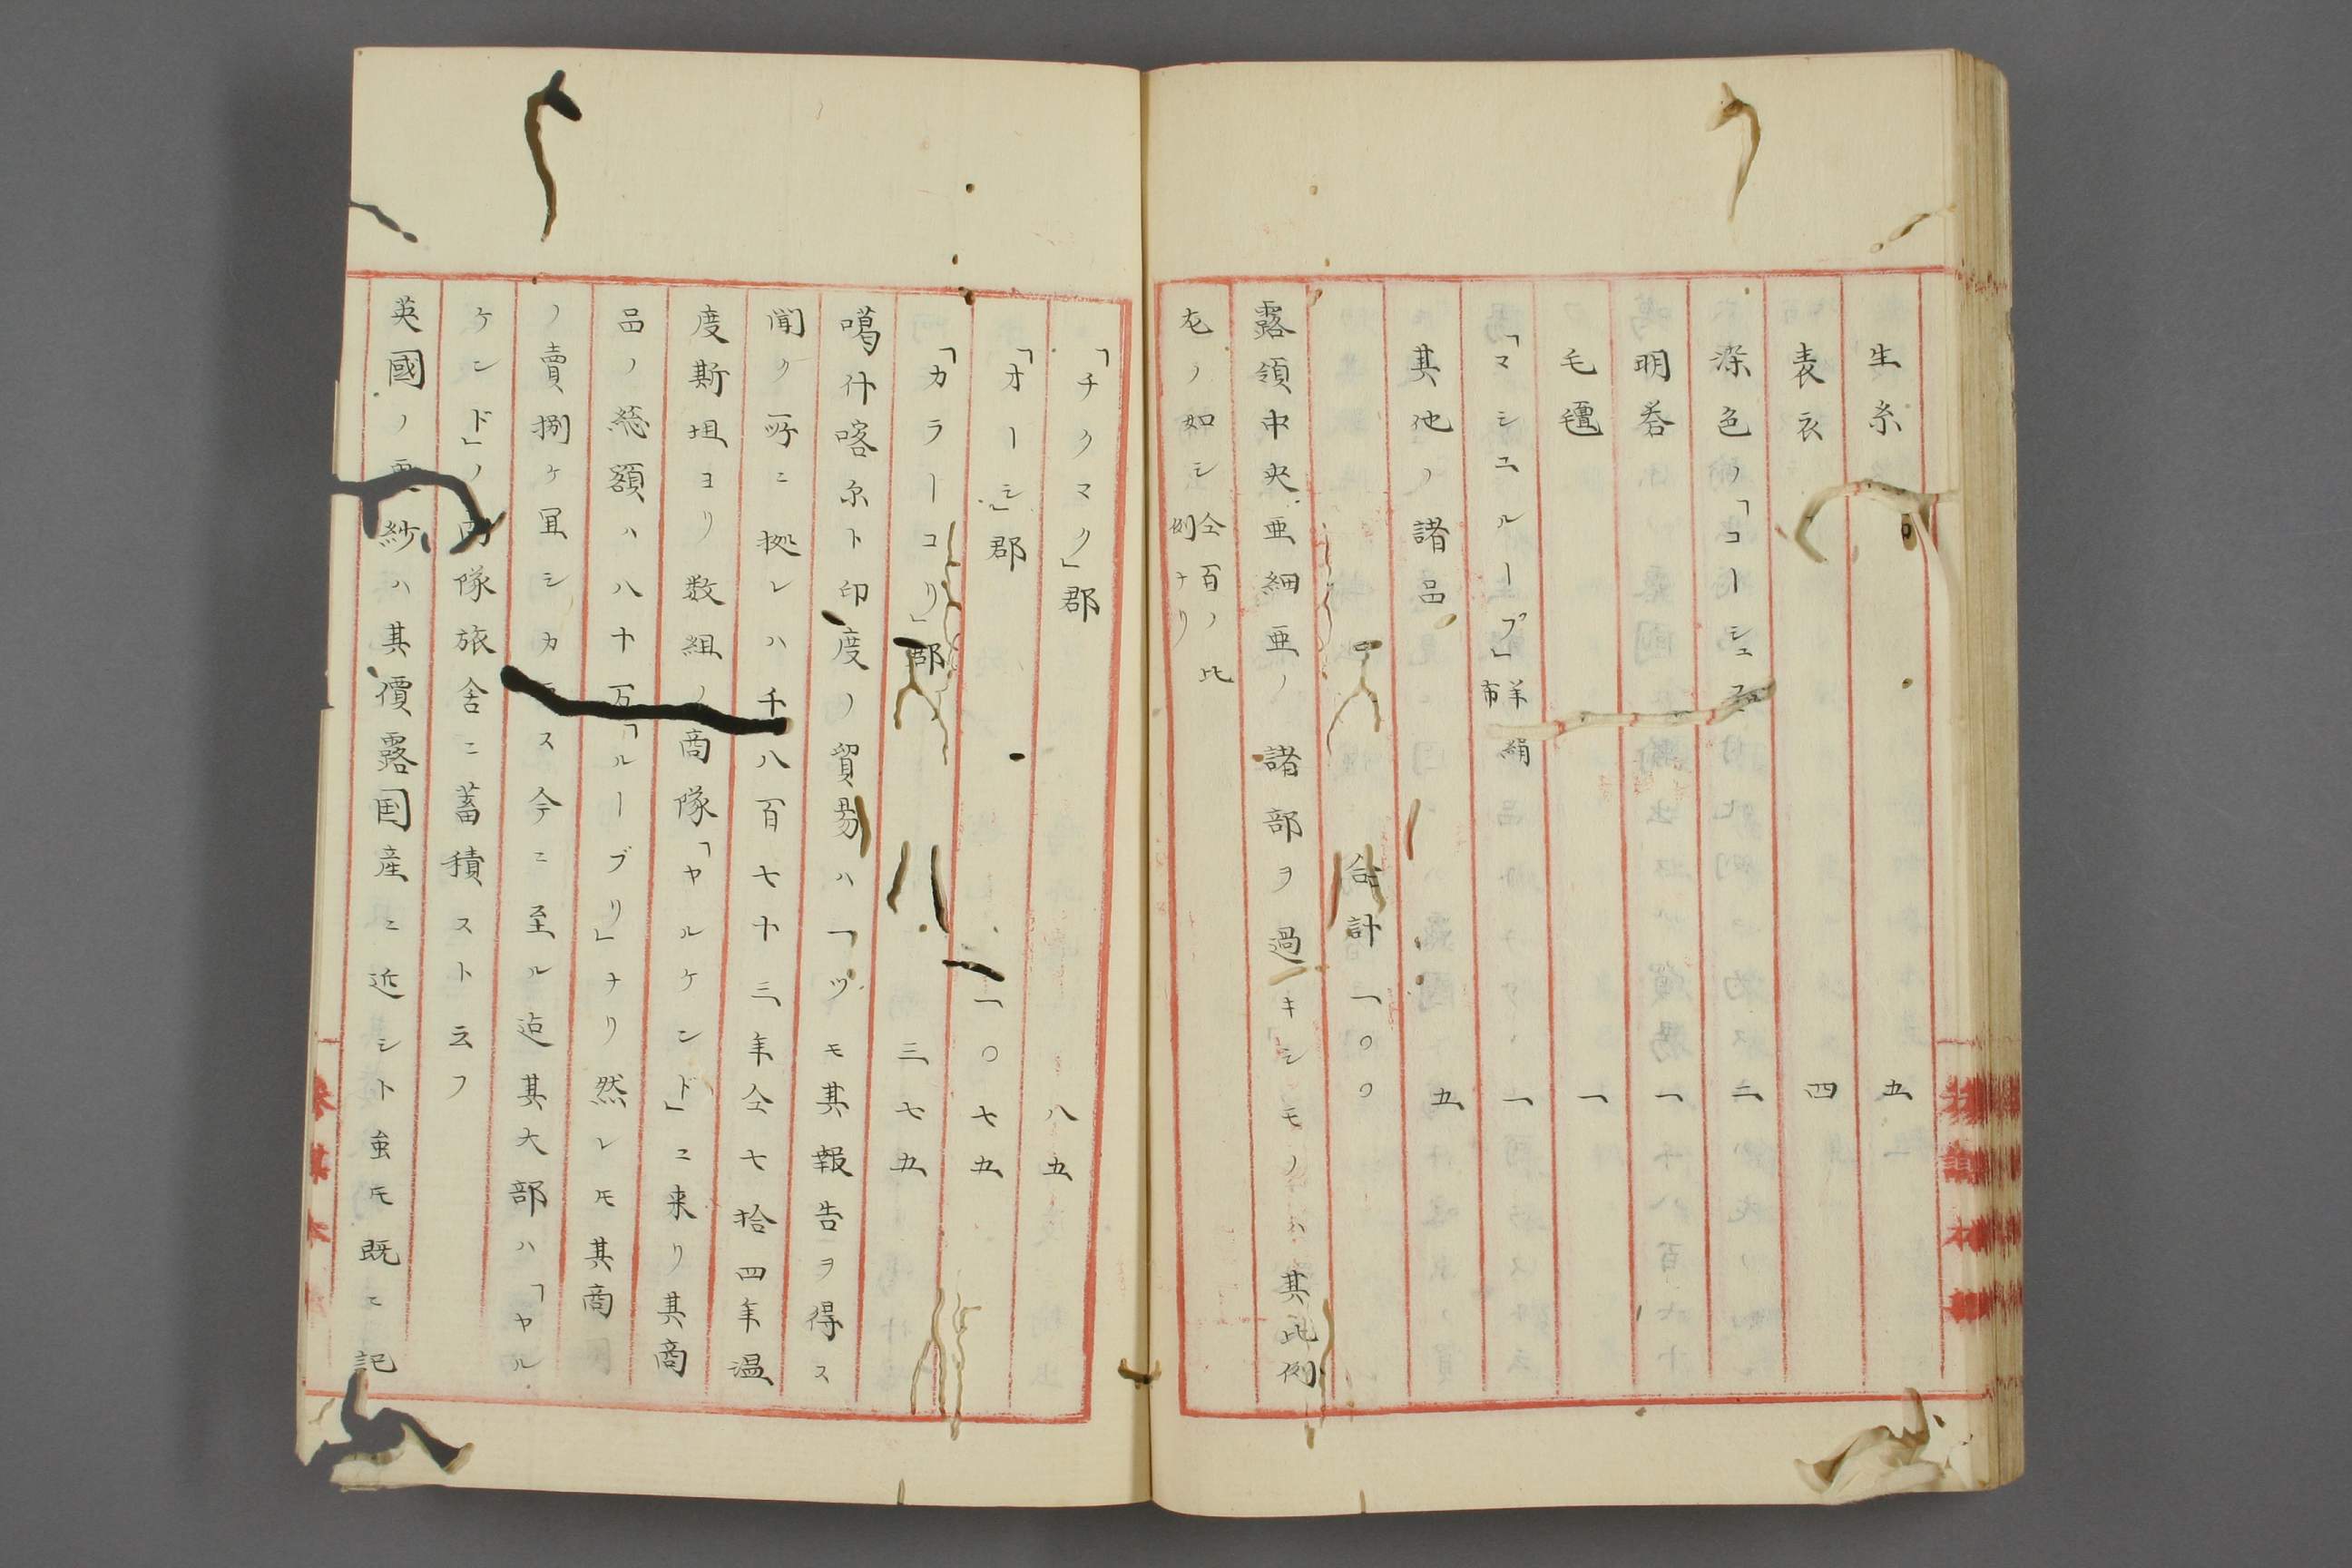 生糸 五
表衣 四
深色ノ「コーシュ 二
明礬 一
毛氊 一
「マシユルーブ」 羊絹布 一
其他ノ諸品 五
合計 一〇〇
露領中央亜細亜ノ諸部ヲ過キシモノハ其比例
左ノ如シ 仝百ノ比例ナリ
「チクマク」郡 八五
「オーシ」郡 一〇七五
「カラーコリ」郡 三七五
噶什喀尓ト印度ノ貿易ハ一ツモ其報告ヲ得ス
聞ク所ニ拠レハ千八百七十三年仝七拾四年温
度斯坦ヨリ数組ノ商隊「ヤルケンド」ニ来リ其商
品ノ総額ハ八十万「ルーブリ」ナリ然レモ其商
ノ賣捌ケ冝シカラス今ニ至ル迠其大部ハ「ヤル
ケンド」ノ商隊旅舎ニ蓄積スト云フ
英國ノ更紗ハ其價露国産ニ近シト虽モ既ニ記
参謀本部